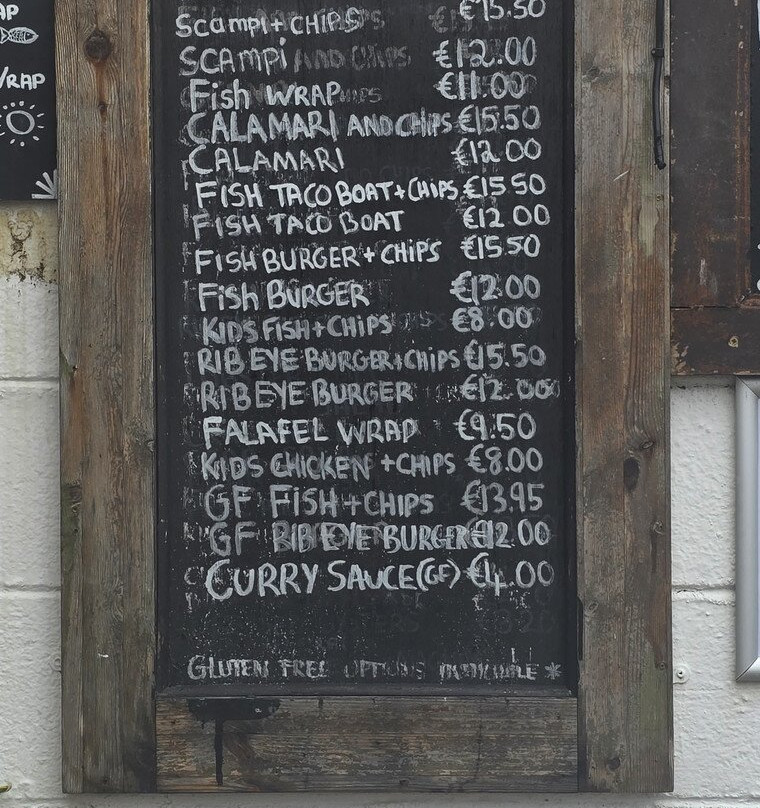 AP
WRAP
Scampi + CHIPS €15.50
SCAMPI €12.00
Fish WRAP €11.00
CALAMARI AND CHIPS €15.50
CALAMARI €12.00
FISH TACO BOAT + CHIPS €15.50
FISH TACO BOAT €12.00
FISH BURGER + CHIPS €15.50
Fish BURGER €12.00
KIDS FISH + CHIPS €8.00
RIB EYE BURGER + CHIPS €15.50
RIB EYE BURGER €12.00
FALAFEL WRAP €9.50
KIDS CHICKEN + CHIPS €8.00
GF FISH + CHIPS €13.95
GF RIB EYE BURGER €12.00
CURRY SAUCE (GF) €4.00
GLUTEN FREE OPTIONS AVAILABLE *